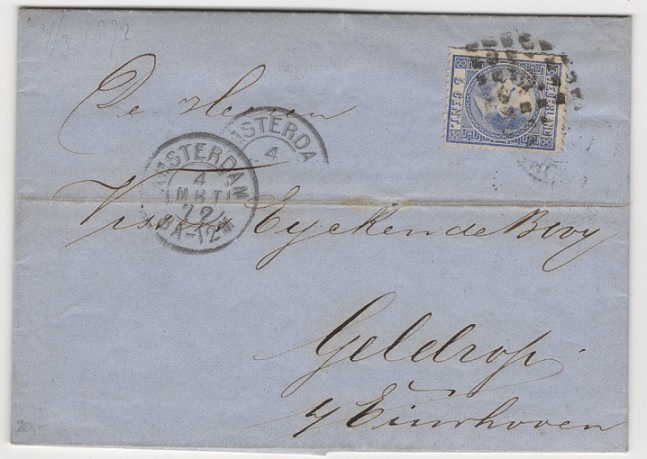 4/3 1872
De Heeren
NEDERLAND
5 CENT.
AMSTERDA
4
AMSTERDAM
4
MRT
72
8A-12M
Eycken de Booy
Geldrop
Eindhoven
20,-